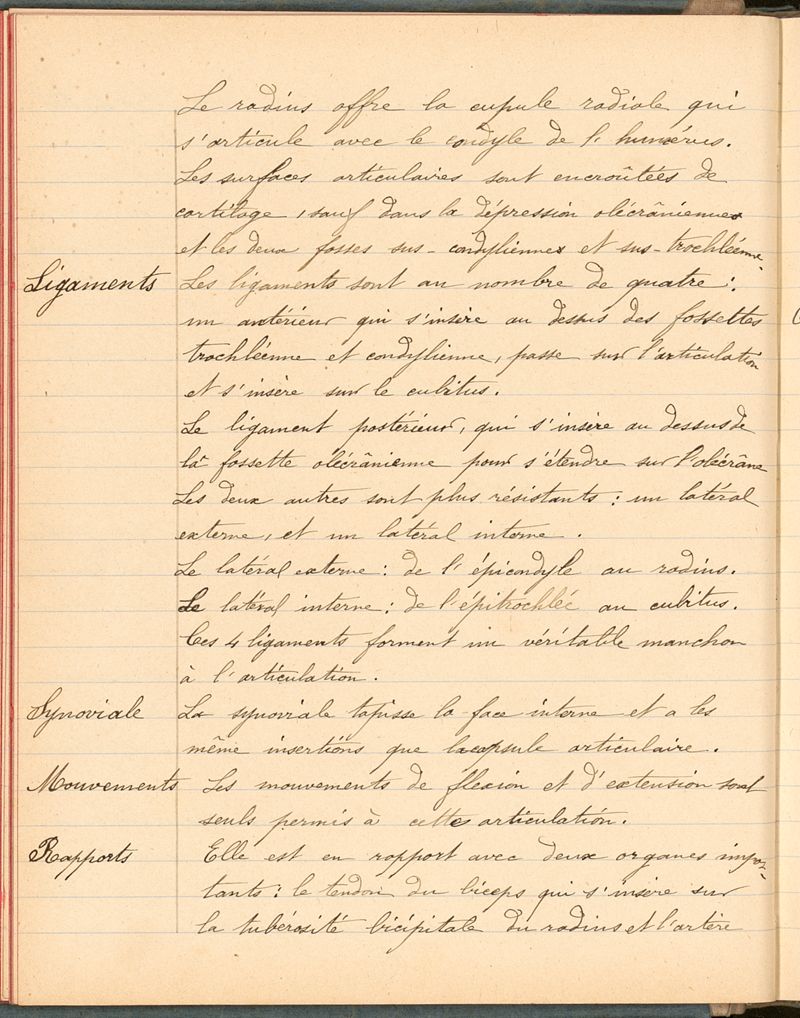 Le radius offre la cupule radiale qui
s'articule avec le condyle de l'humérus.
Les surfaces articulaires sont encroûtées de
cartilage, sauf dans la dépression olécrânienne
et les deux fosses sus-condyliennes et sus-trochléenne.
Ligaments Les ligaments sont au nombre de quatre :
un antérieur qui s'insère au dessus des fossettes
trochléenne et condylienne, passe sur l'articulation
et s'insère sur le cubitus.
Le ligament postérieur, qui s'insère au dessus de
la fossette olécrânienne pour s'étendre sur l'olécrâne
Les deux autres sont plus résistants : un latéral
externe, et un latéral interne.
Le latéral externe : de l'épicondyle au radius.
Le latéral interne : de l'épitrochlée au cubitus.
Ces 4 ligaments forment un véritable manchon
à l'articulation.
Synoviale La synoviale tapisse la face interne et a les
même insertions que la capsule articulaire.
Mouvements Les mouvements de flexion et d'extension sont
seuls permis à cette articulation.
Rapports Elle est en rapport avec deux organes impor-
tants : le tendon du biceps qui s'insère sur
la tubérosité bicipitale du radius et l'artère